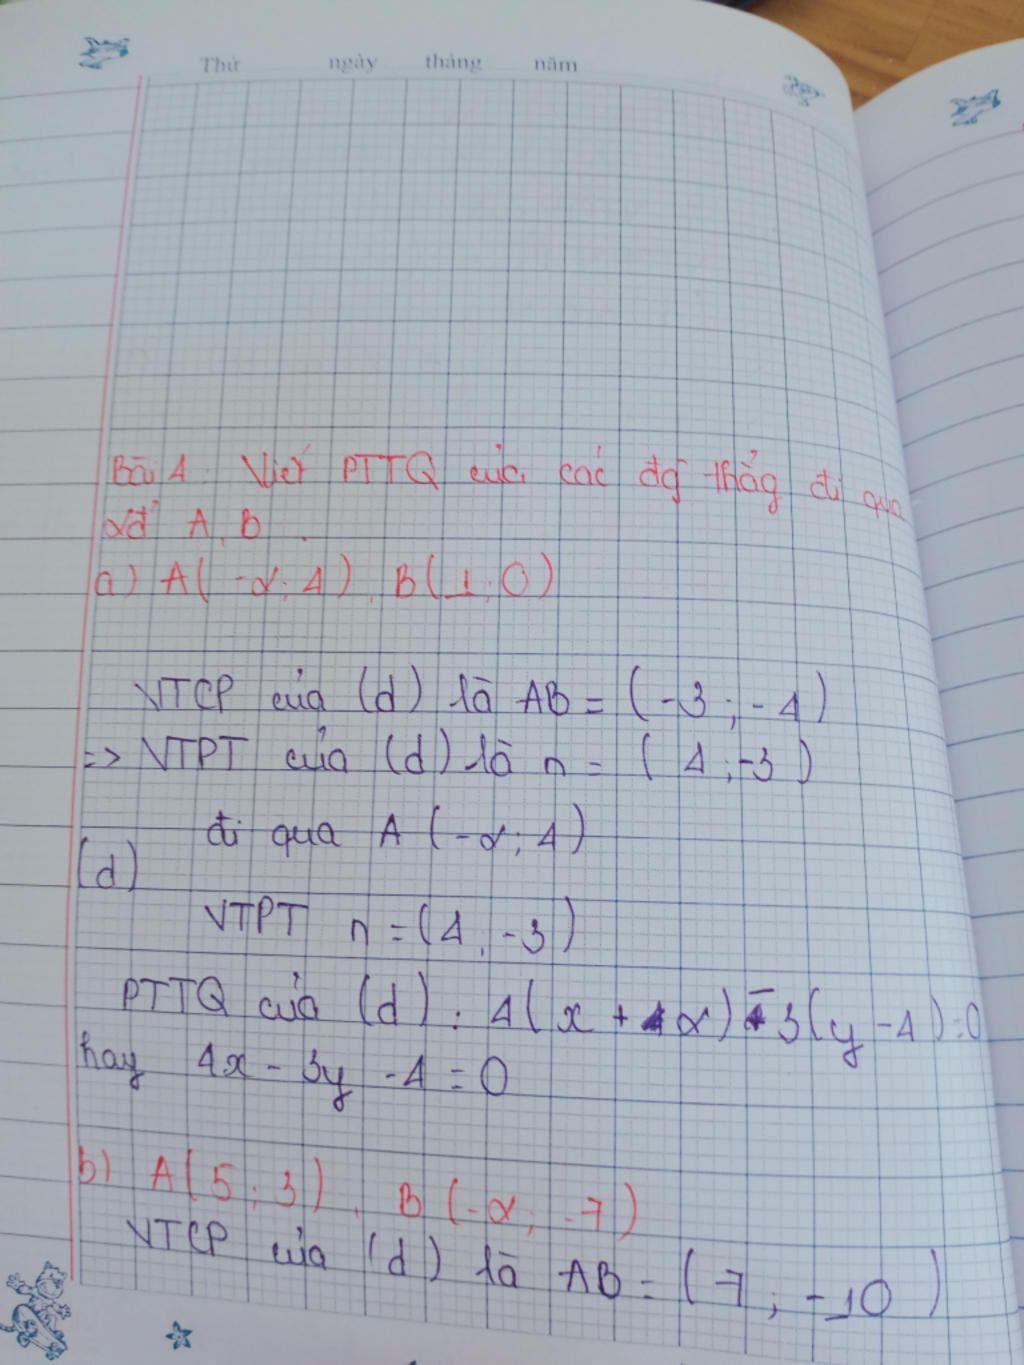 Thứ ngày tháng năm
Bài 4: Viết PTTQ của các đg thẳg đi qua
2đ' A, B.
a) A(-2; 4), B(1; 0)
VTCP của (d) là AB = (-3; -4)
=> VTPT của (d) là n = (4; -3)
đi qua A (-2; 4)
(d)
VTPT n = (4; -3)
PTTQ của (d): 4(x + 2) - 3(y - 4) = 0
hay 4x - 3y - 4 = 0
b) A(5; 3), B(-2; -7)
VTCP của (d) là AB = (7; -10)